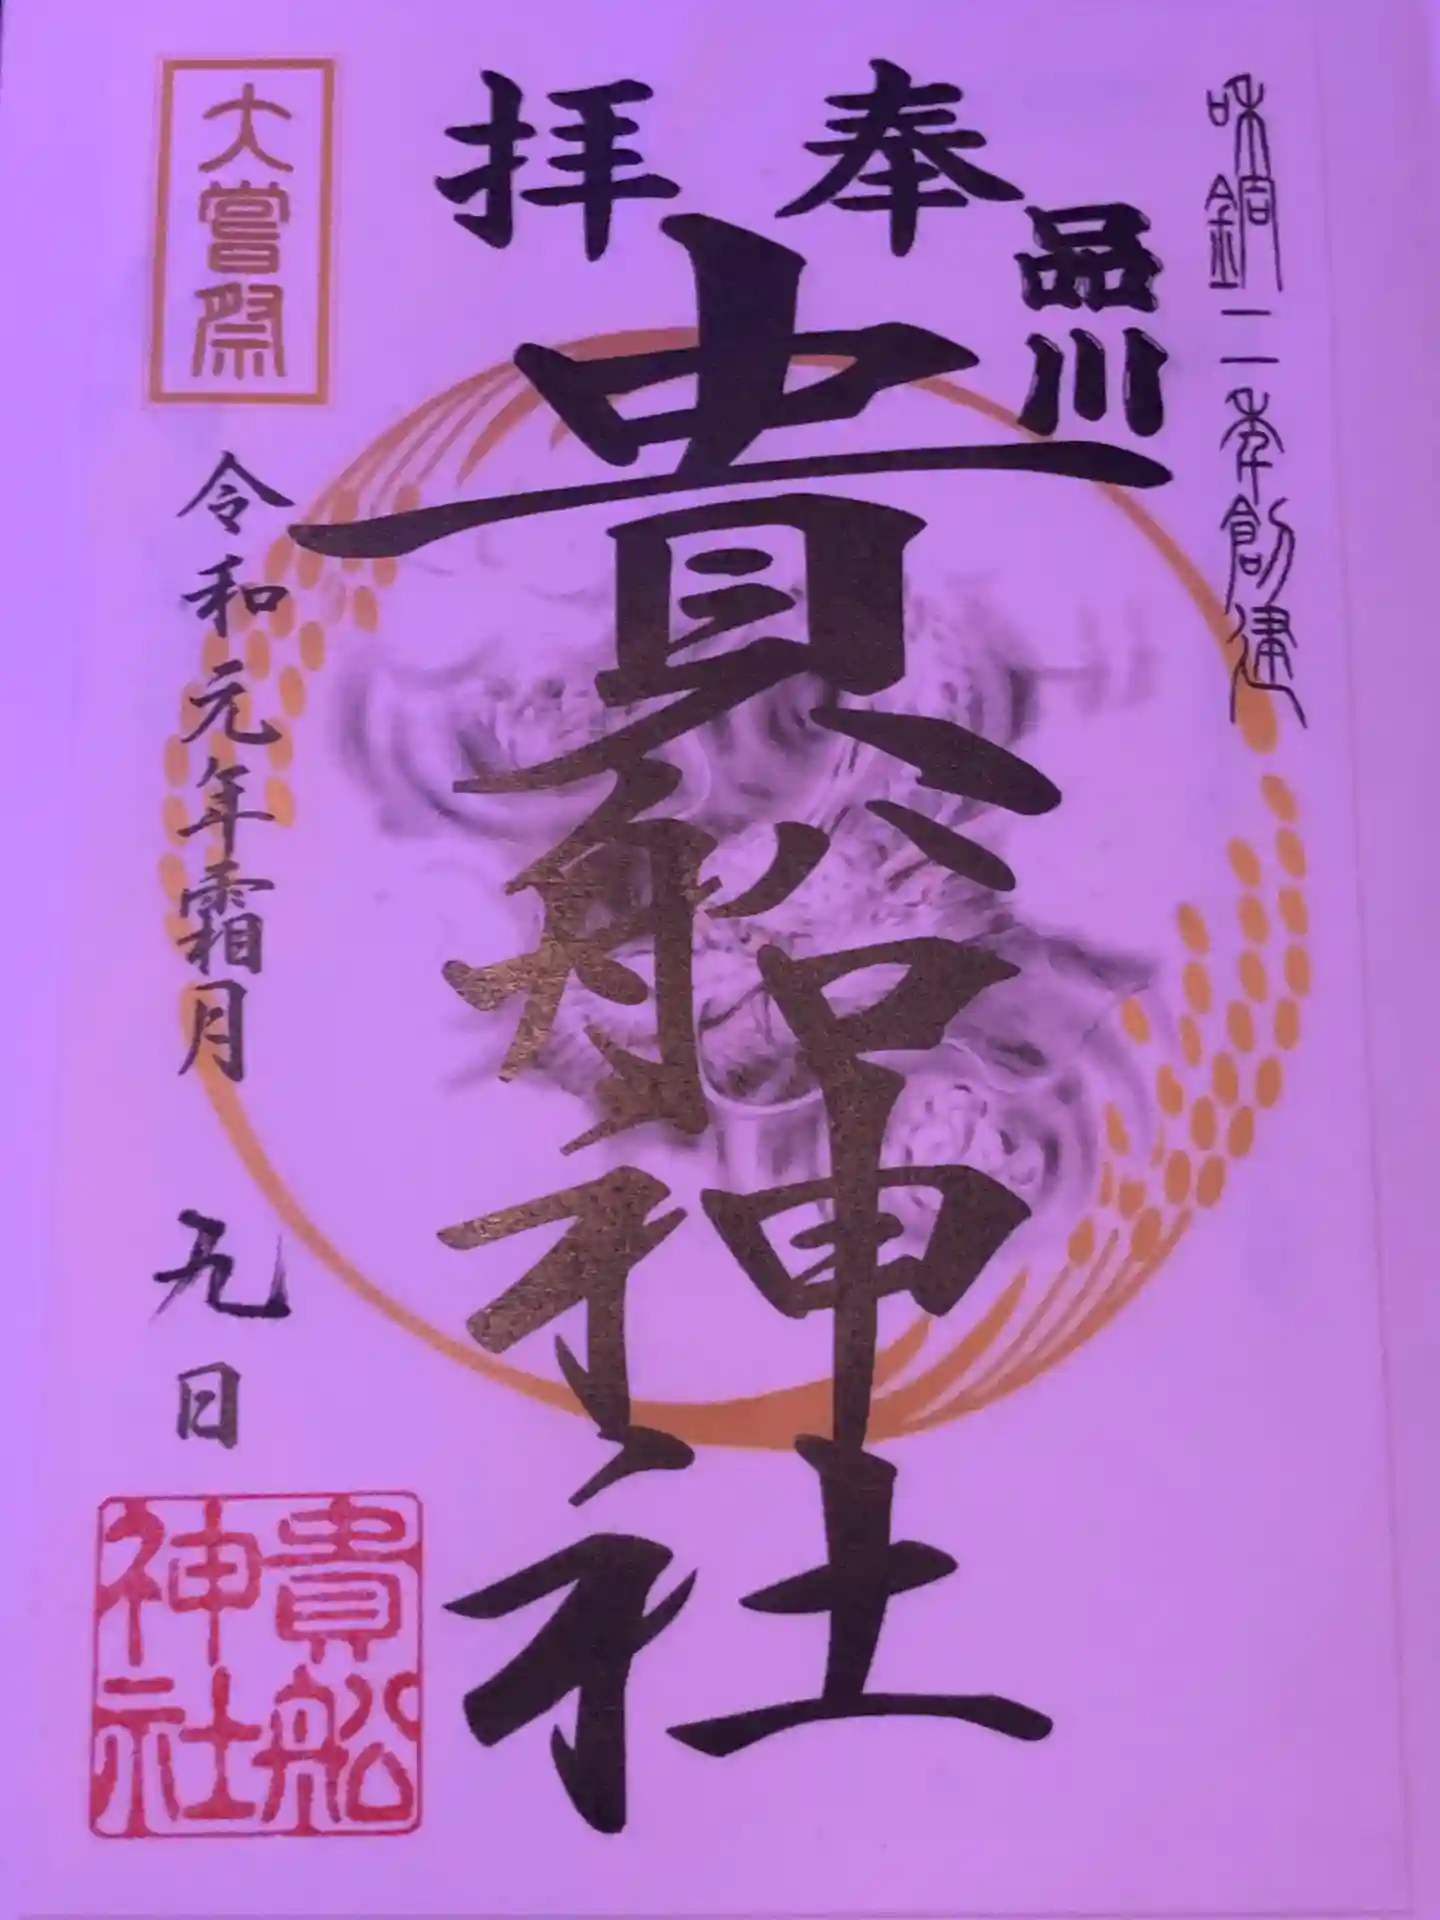 味銅二年創建
奉拝
品川
貴船神社
大嘗祭
令和元年霜月九日
貴船
神社